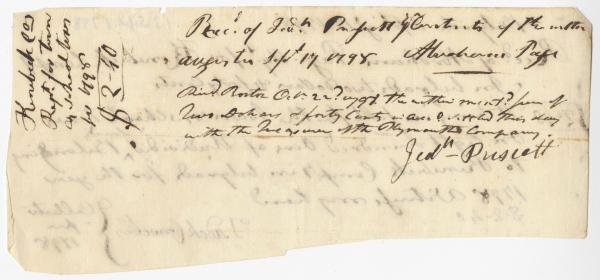 Rec.d of Jed.h Prescott ye Contents of the within
Augusta Sept 17 1798. Abraham Page
Rec.d Boston Oct. 22d 1798 the within ment.d sum of
two Dollars & forty Cents in acc.t settled this day
with the Treasurer of the Plymouth Company.
Jed.h Prescott
Kennebeck Co
Rec.t for town
and school taxes
for 1798
$2-40